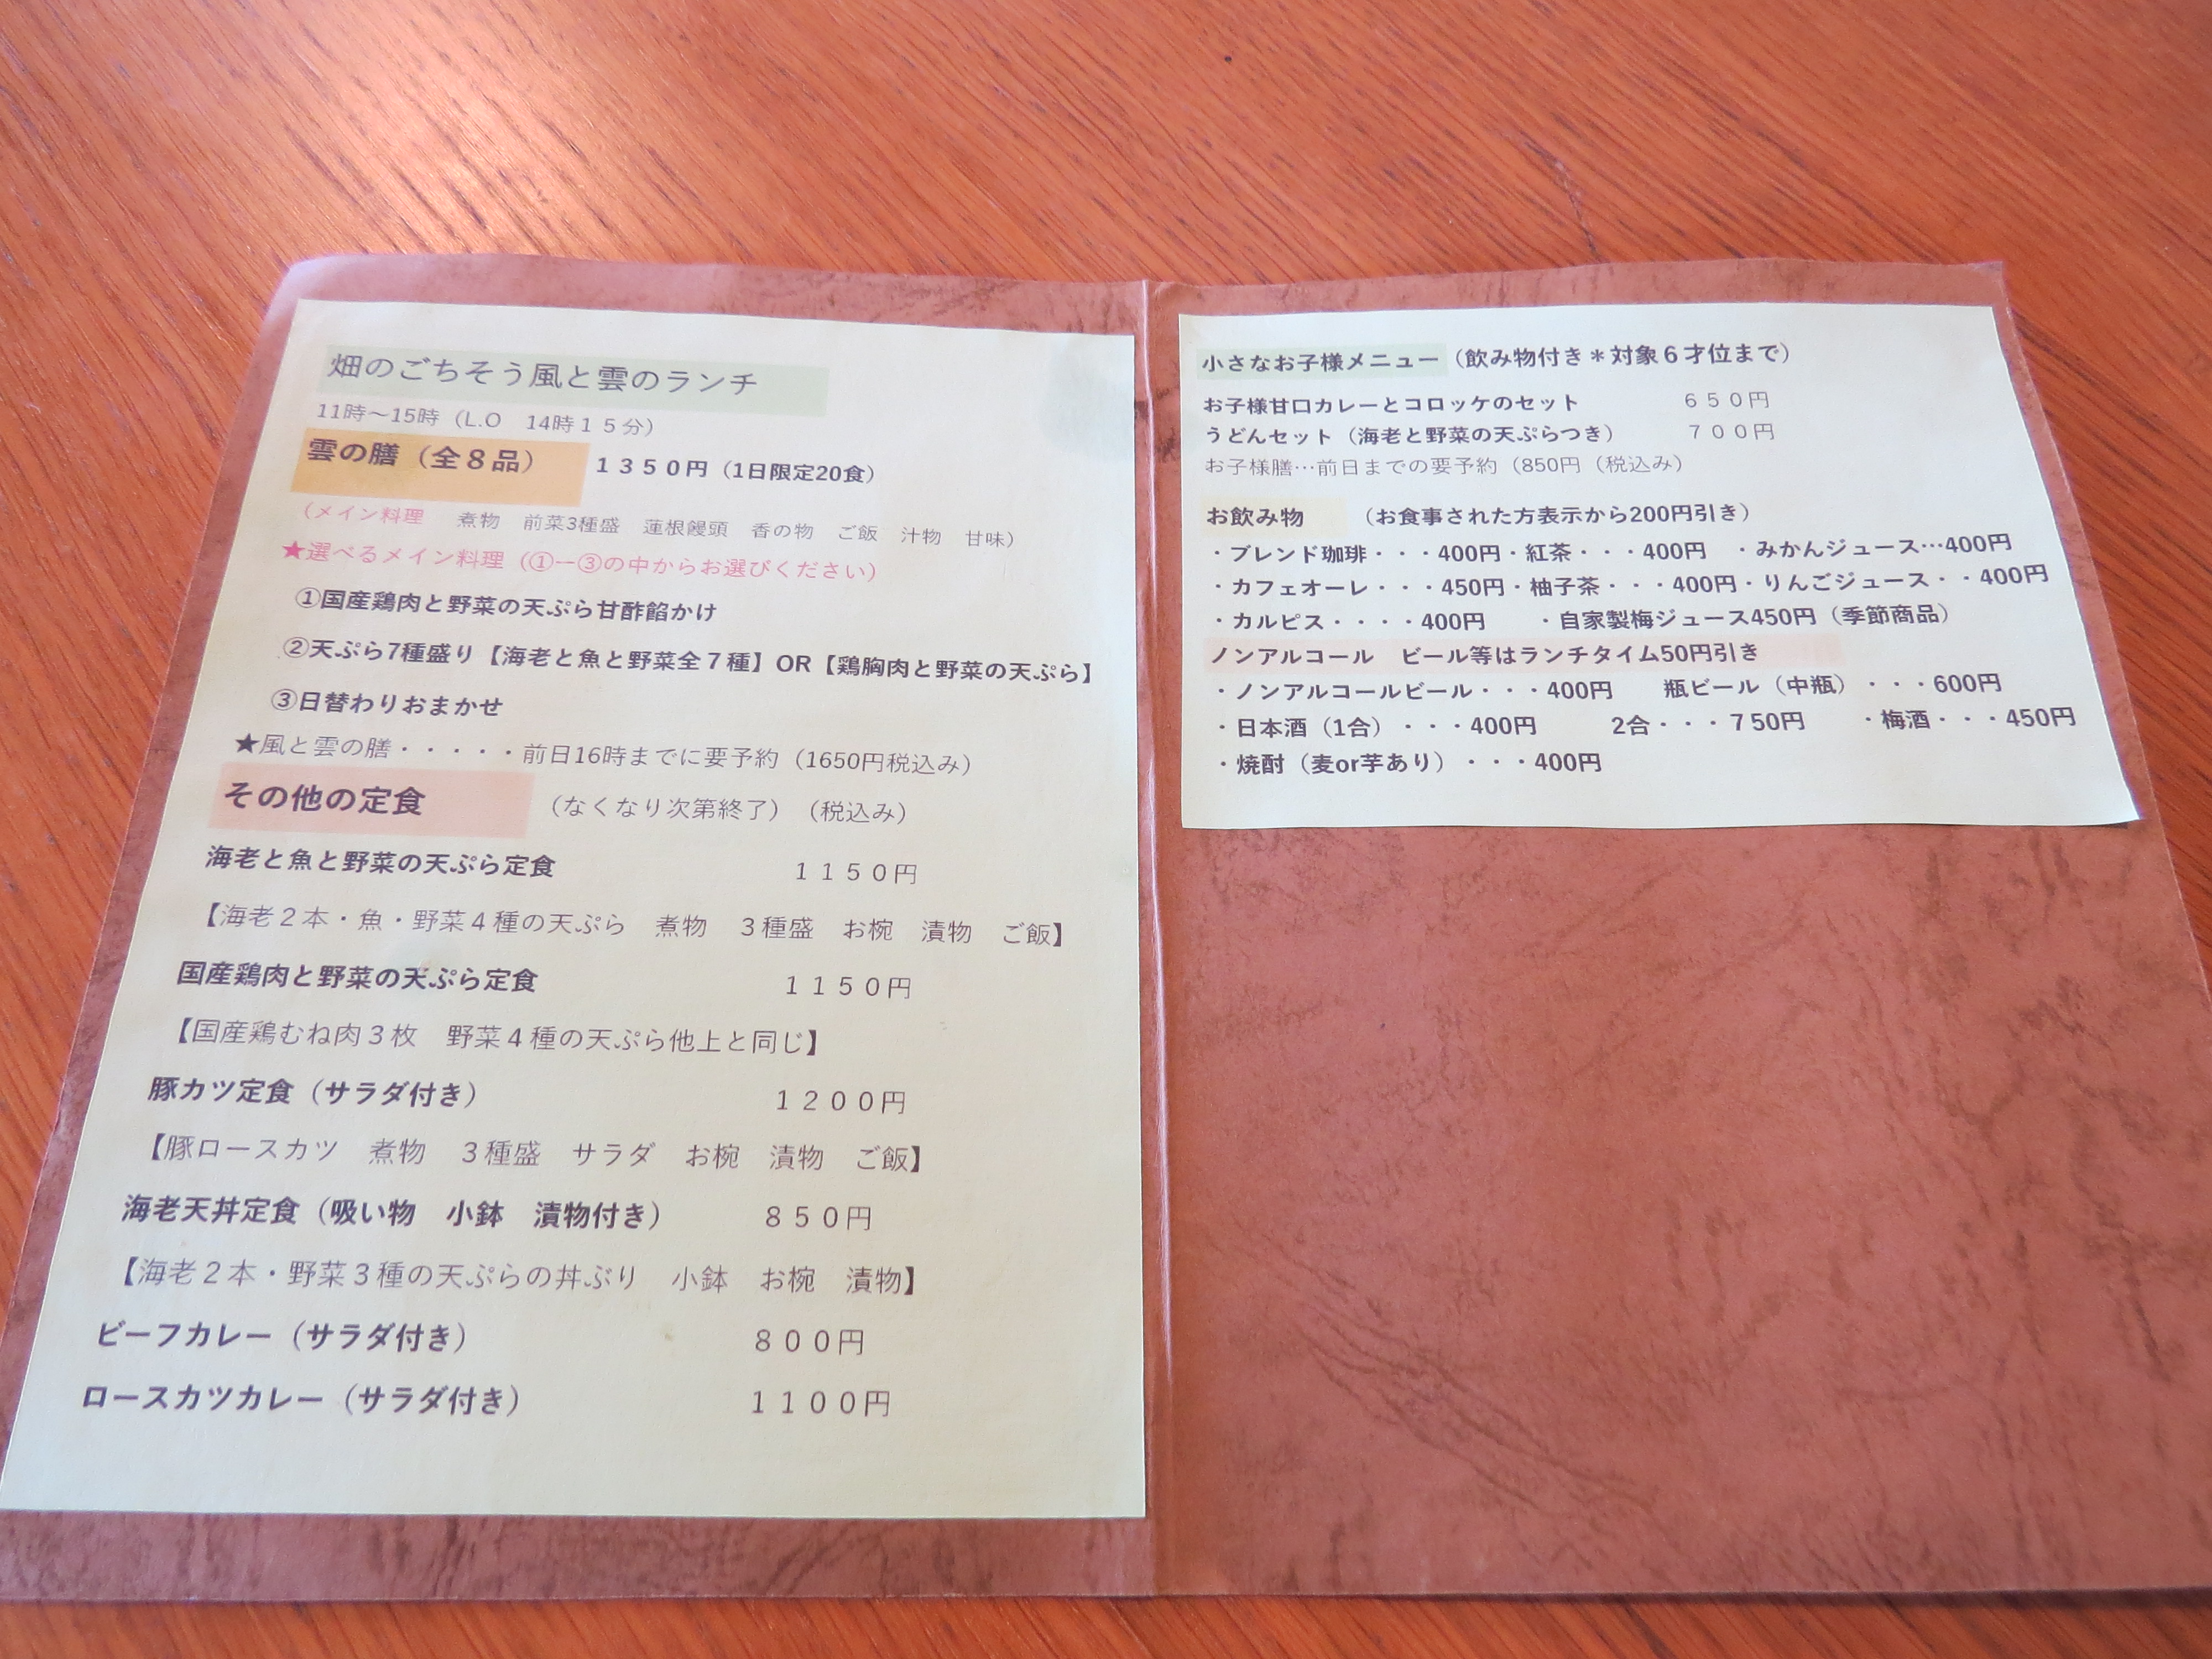 畑のごちそう風と雲のランチ
11時～15時（L.O　14時１５分）
雲の膳（全８品）　１３５０円（1日限定20食）
（メイン料理　煮物　前菜3種盛　蓮根饅頭　香の物　ご飯　汁物　甘味）
★選べるメイン料理（①ー③の中からお選びください）
①国産鶏肉と野菜の天ぷら甘酢餡かけ
②天ぷら7種盛り【海老と魚と野菜全７種】OR【鶏胸肉と野菜の天ぷら】
③日替わりおまかせ
★風と雲の膳・・・・・前日16時までに要予約（1650円税込み）
その他の定食　（なくなり次第終了）（税込み）
海老と魚と野菜の天ぷら定食　１１５０円
【海老２本・魚・野菜４種の天ぷら　煮物　３種盛　お椀　漬物　ご飯】
国産鶏肉と野菜の天ぷら定食　１１５０円
【国産鶏むね肉３枚　野菜４種の天ぷら他上と同じ】
豚カツ定食（サラダ付き）　１２００円
【豚ロースカツ　煮物　３種盛　サラダ　お椀　漬物　ご飯】
海老天丼定食（吸い物　小鉢　漬物付き）　８５０円
【海老２本・野菜３種の天ぷらの丼ぶり　小鉢　お椀　漬物】
ビーフカレー（サラダ付き）　８００円
ロースカツカレー（サラダ付き）　１１００円
小さなお子様メニュー（飲み物付き＊対象６才位まで）
お子様甘口カレーとコロッケのセット　６５０円
うどんセット（海老と野菜の天ぷらつき）　７００円
お子様膳…前日までの要予約（850円（税込み）
お飲み物　（お食事された方表示から200円引き）
・ブレンド珈琲・・・400円・紅茶・・・400円　・みかんジュース…400円
・カフェオーレ・・・450円・柚子茶・・・400円・りんごジュース・・400円
・カルピス・・・・400円　・自家製梅ジュース450円（季節商品）
ノンアルコール　ビール等はランチタイム50円引き
・ノンアルコールビール・・・400円　瓶ビール（中瓶）・・・600円
・日本酒（1合）・・・400円　2合・・・７50円　・梅酒・・・450円
・焼酎（麦or芋あり）・・・400円